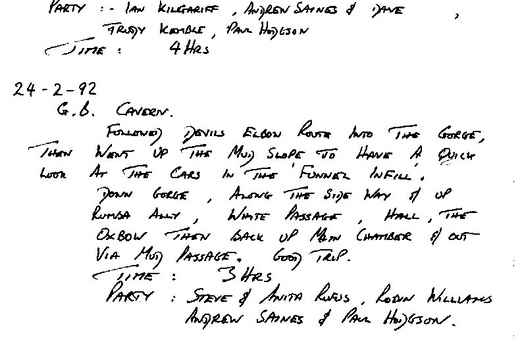 PARTY :- IAN KILGARIFF, ANDREW SAINES & DAVE ,
TRUDY KEMBLE, PAUL HODGSON
TIME : 4 HRS
24-2-92
G.B. CAVERN.
FOLLOWED DEVILS ELBOW ROUTE INTO THE GORGE,
THEN WENT UP THE MUD SLOPE TO HAVE A QUICK
LOOK AT THE CARS IN THE 'FUNNEL INFILL'.
DOWN GORGE, ALONG THE SIDE WAY & UP
RUMBA ALLY, WHITE PASSAGE, HALL, THE
OXBOW THEN BACK UP MAIN CHAMBER & OUT
VIA MUD PASSAGE. GOOD TRIP.
TIME : 3 HRS
PARTY : STEVE & ANITA RUFUS, ROBIN WILLIAMS
ANDREW SAINES & PAUL HODGSON.